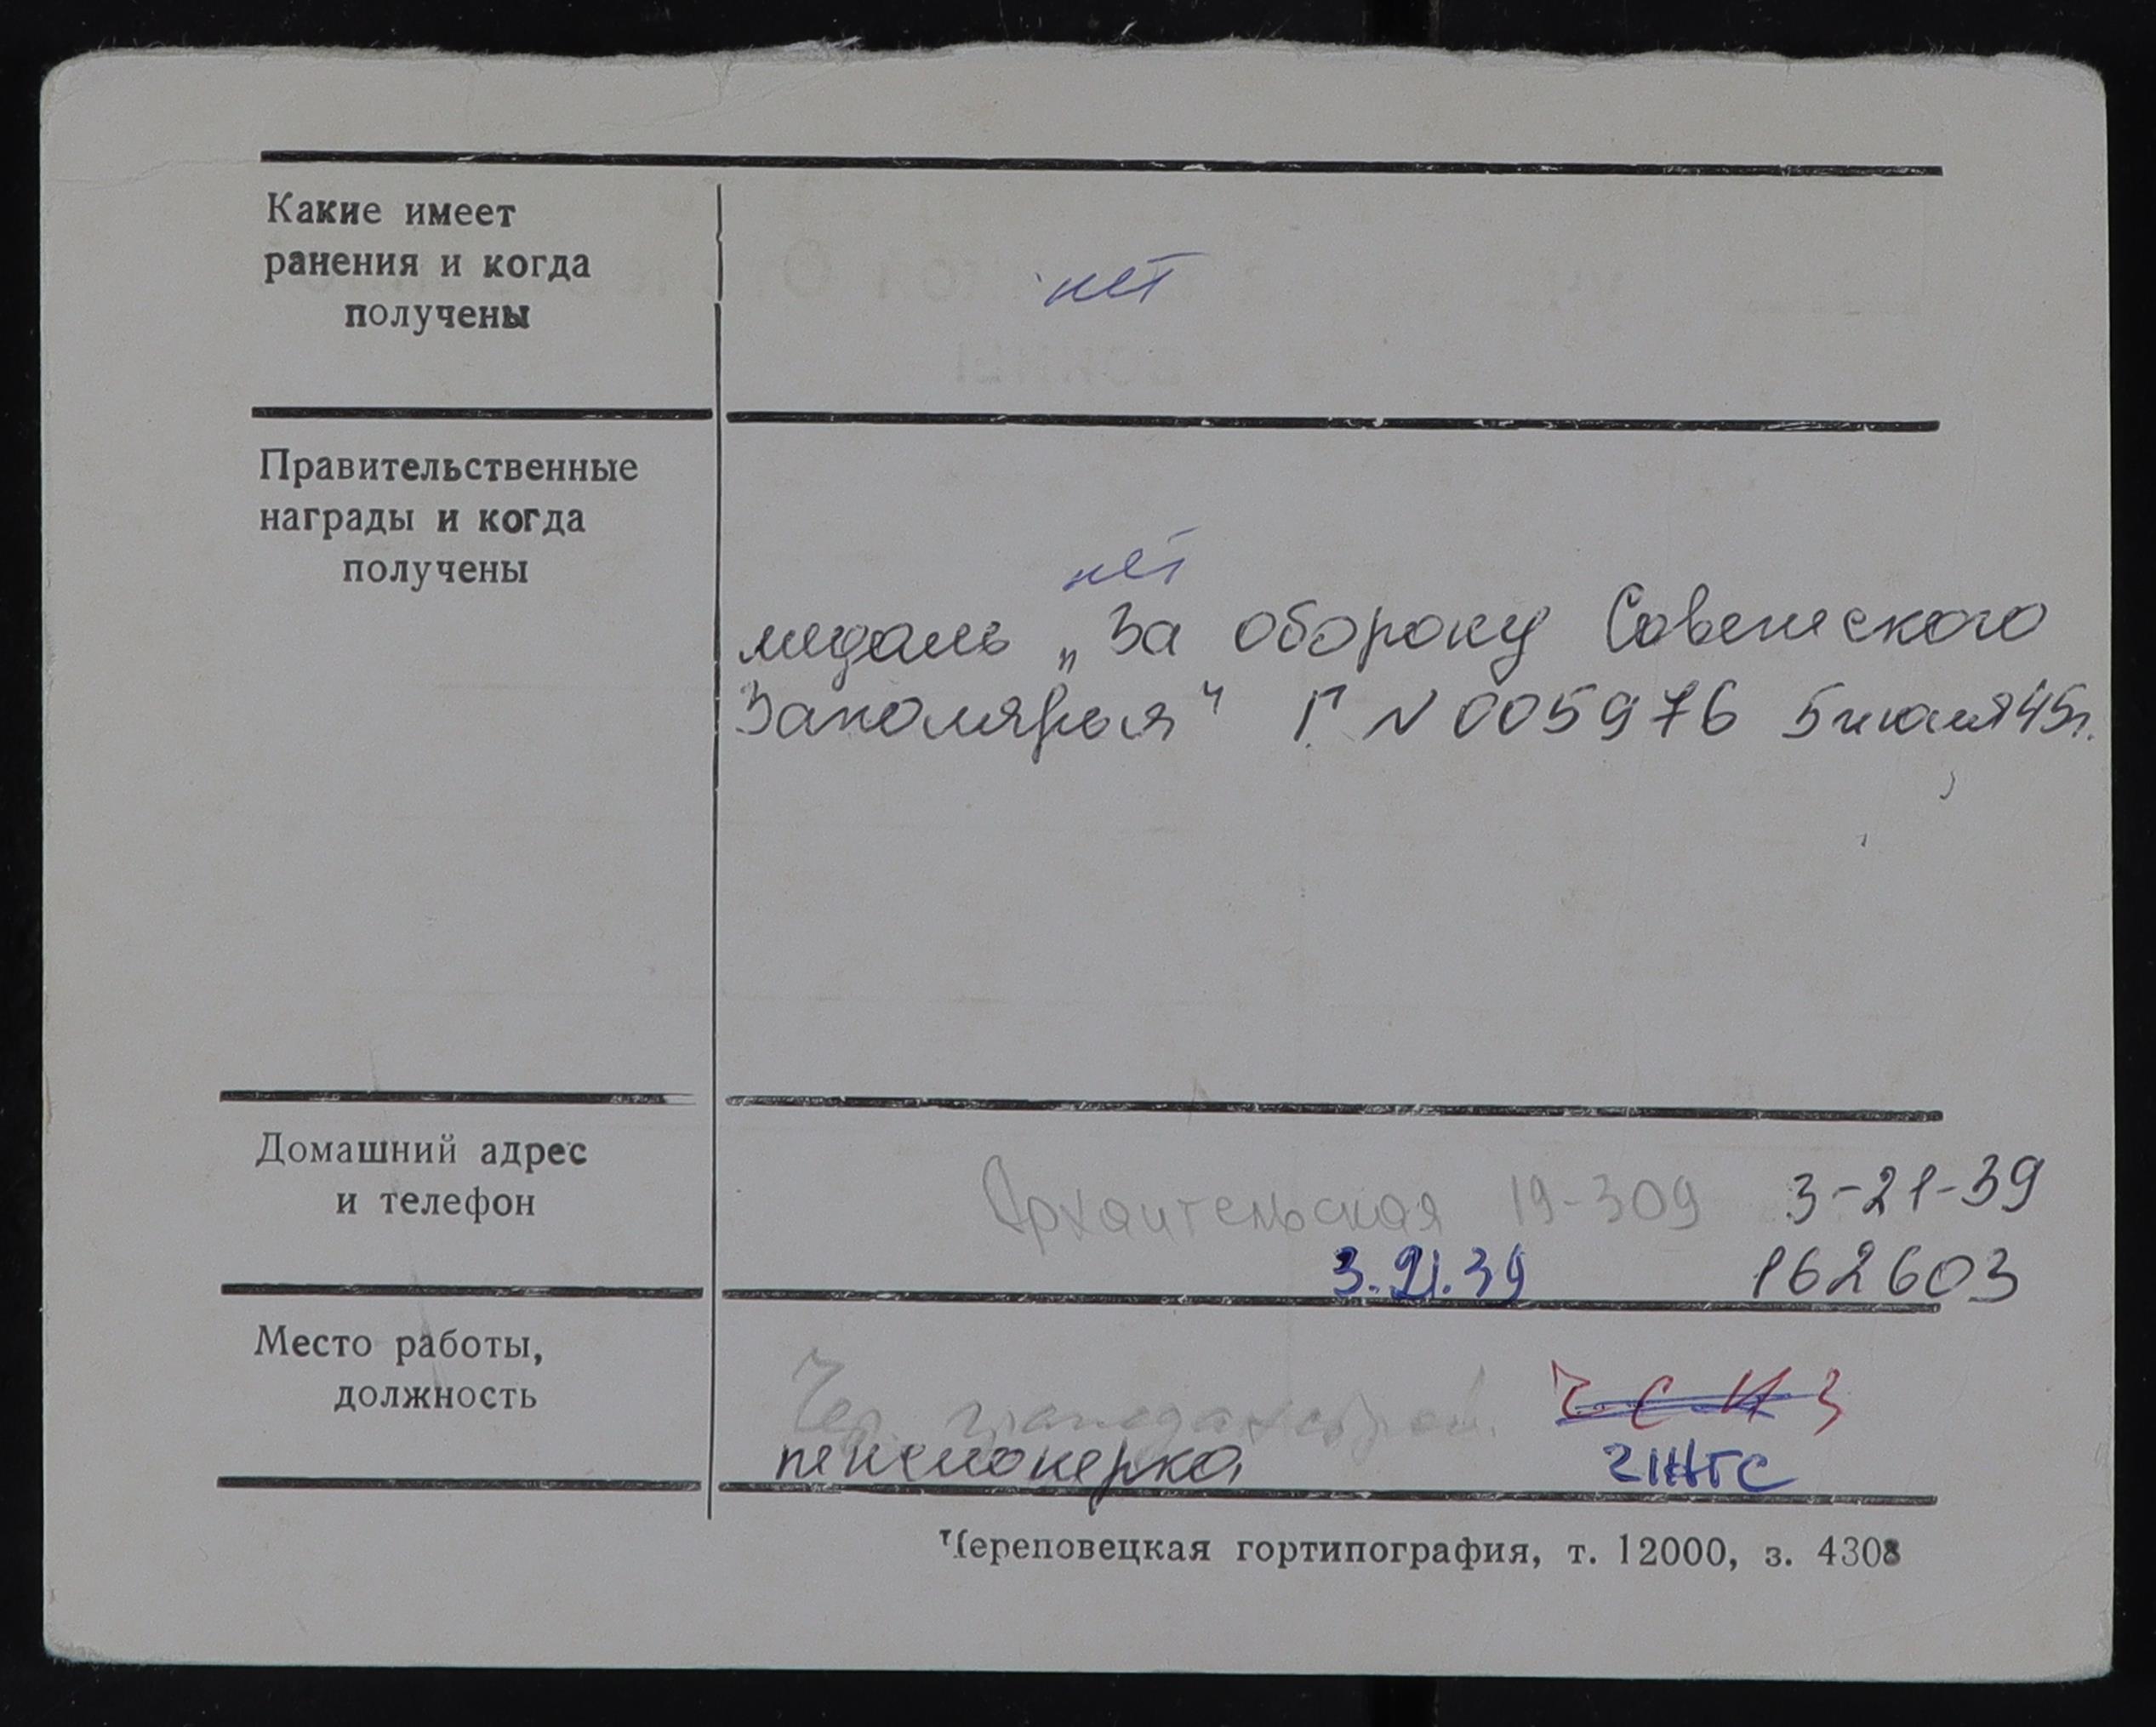 Какие имеет
ранения и когда
получены
нет
Правительственные
награды и когда
получены
нет
медаль „За оборону Советского
Заполярья" Г N 005976 5 июля 45г.
Домашний адрес
и телефон
19-309 3-21-39
3.21.39 162603
Место работы,
должность
Чер. Ч С И З
пенсионерка
Череповецкая гортипография, т. 12000, з. 4308